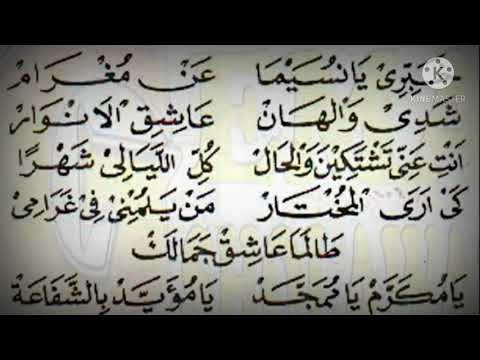 خَبِّرِىْ يَا نُسَيْمَا عَنْ مُغْرَامْ
شَدِىْ وَلْهَانْ عَاشِقِ الْاَنْوَارْ
اَنْتِ عَنِّىْ تَشْتَكِيْنَ وَالْحَالْ كُلَّ اللَّيَالِىْ شَهْرًا
كَىْ اَرَى الْمُخْتَارْ مَنْ يَلُمْنِىْ فِىْ غَرَامِىْ
طَالَمَا عَاشِقْ جَمَالَكْ
يَا مُكَرَّمْ يَا مُمَجَّدْ يَا مُؤَيَّدْ بِالشَّفَاعَةْ
KINEMASTER